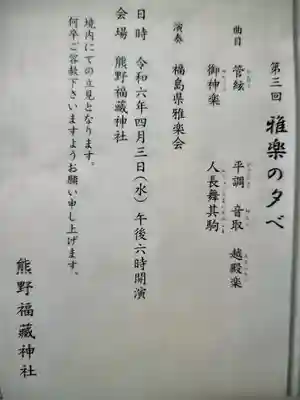 第三回 雅楽の夕べ
曲目 管絃 平調 音取 越殿楽
御神楽 人長舞其駒
演奏 福島県雅楽会
日時 令和六年四月三日(水)午後六時開演
会場 熊野福藏神社
境内にての立見となります。
何卒ご容赦下さいますようお願い申し上げます。
熊野福藏神社